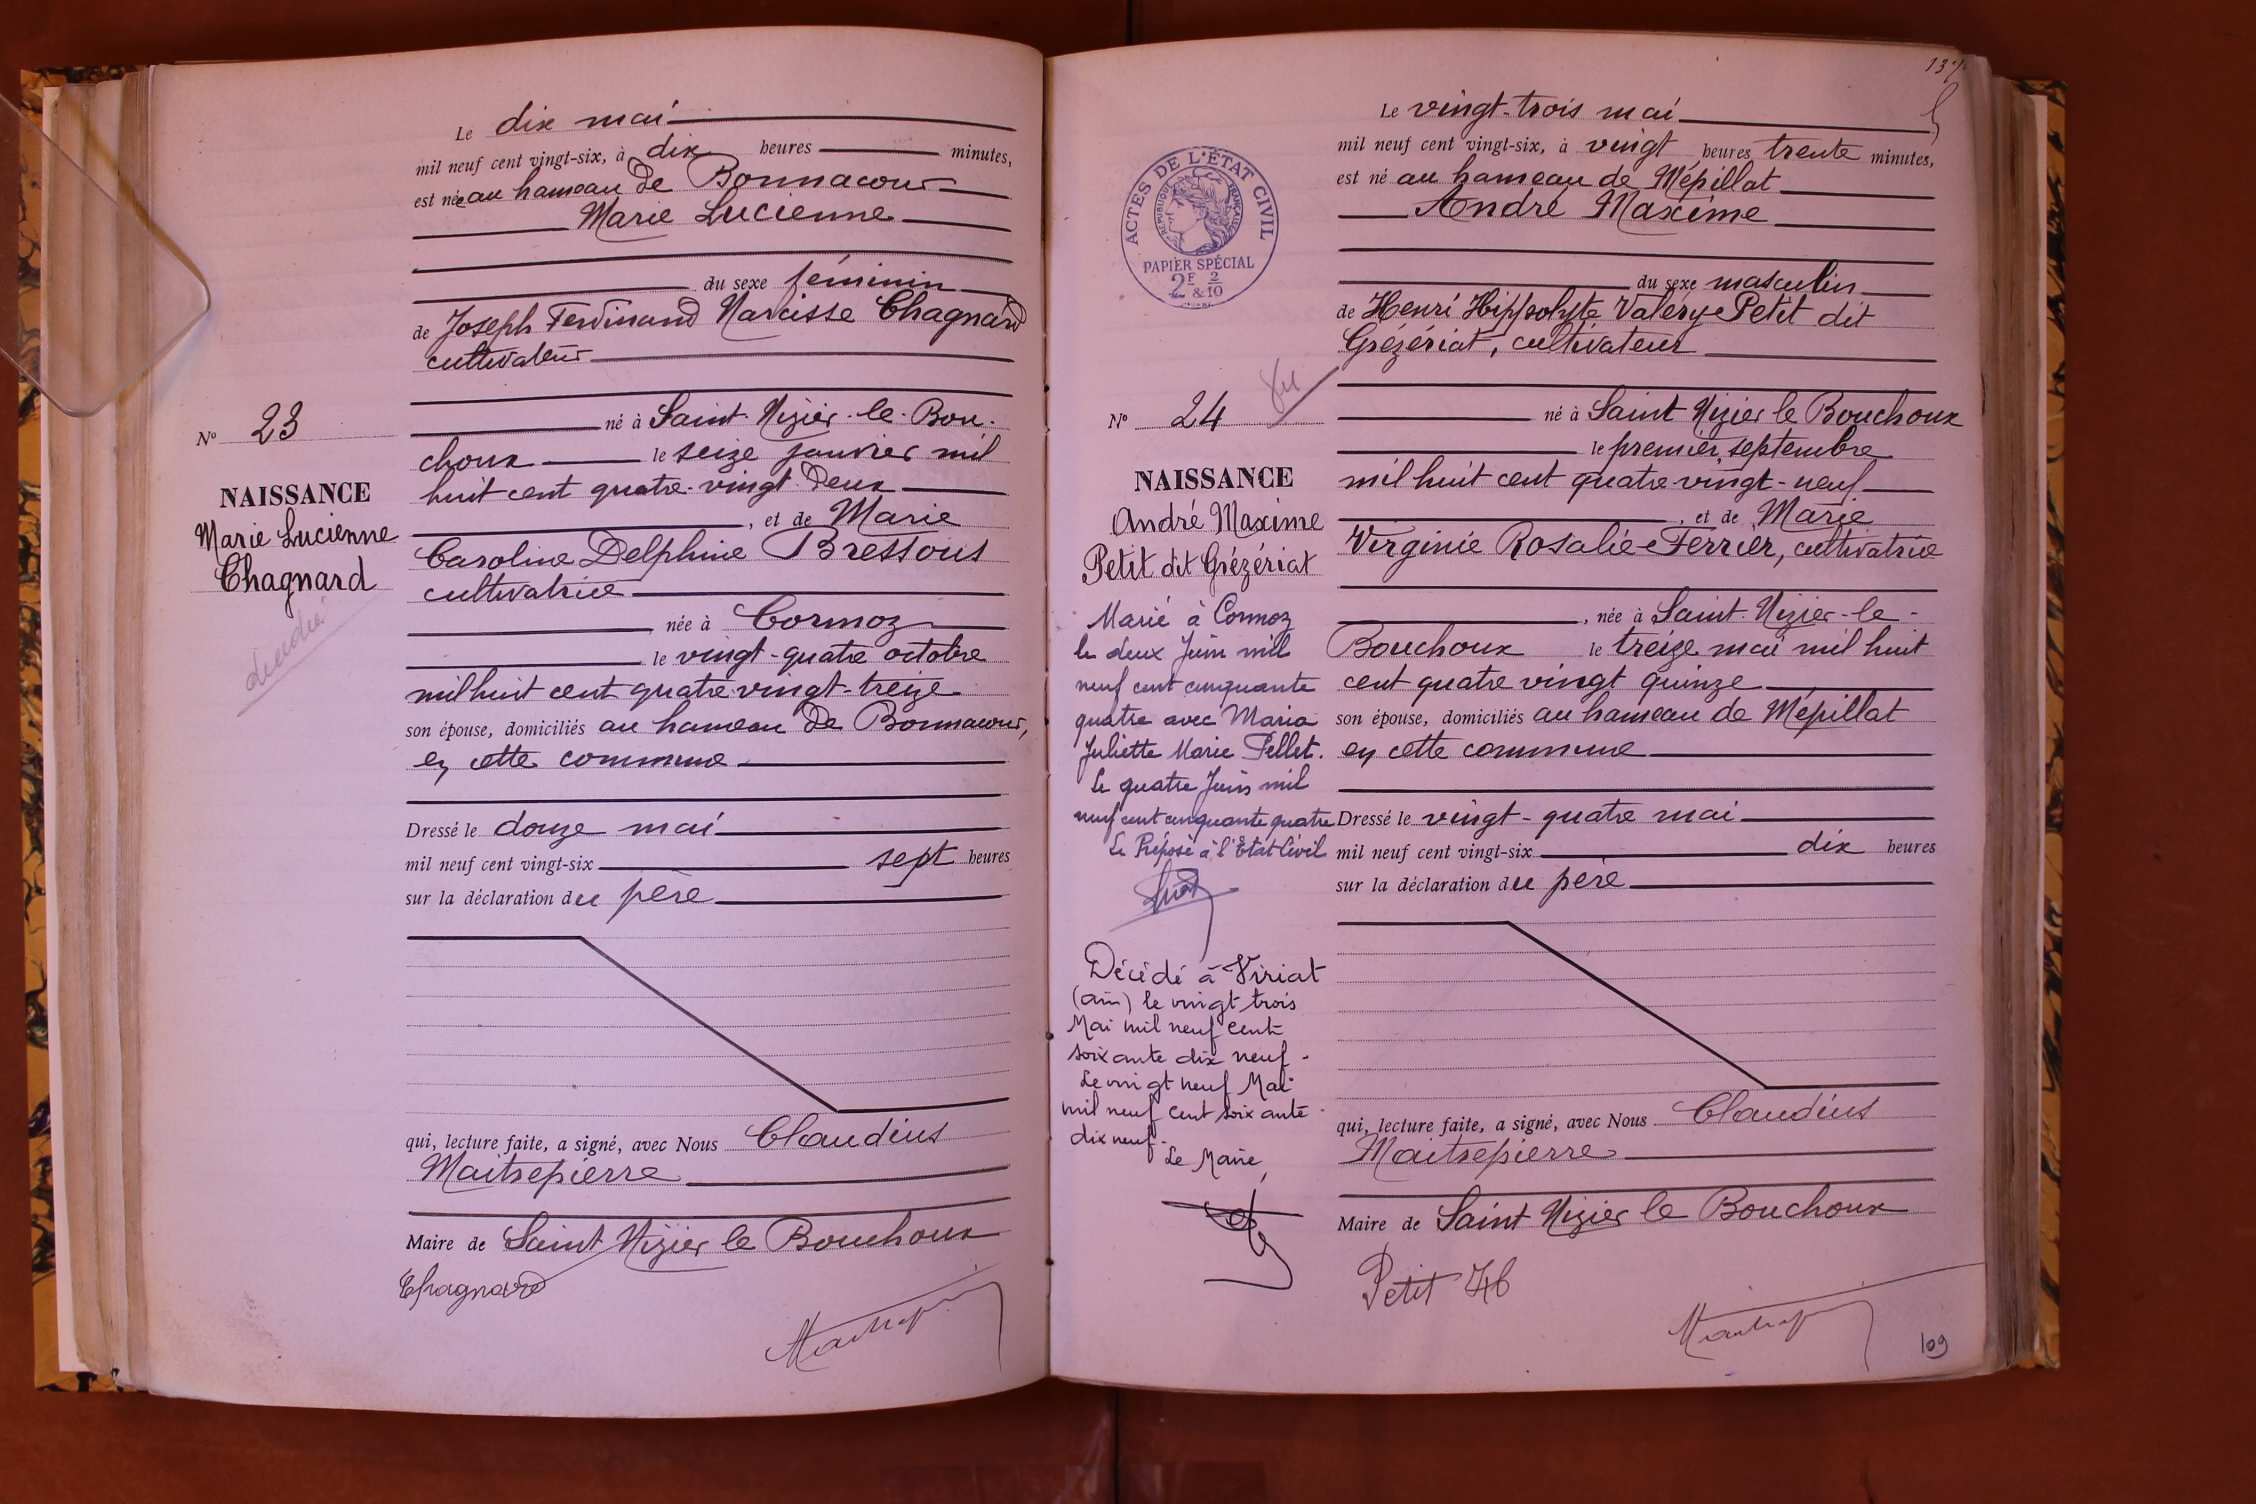 Le dix mai
mil neuf cent vingt-six, à dix heures minutes,
est née au hameau de Bonnacour
Marie Lucienne
du sexe féminin
de Joseph Ferdinand Narcisse Chagnard
cultivateur
né à Saint-Nizier-le-Bou-
choux le seize janvier mil
huit cent quatre-vingt deux
, et de Marie
Caroline Delphine Bressous
cultivatrice
née à Cormoz
le vingt-quatre octobre
mil huit cent quatre vingt-treize
son épouse, domiciliés au hameau de Bonnacour,
en cette commune
Dressé le douze mai
mil neuf cent vingt-six sept heures
sur la déclaration du père
qui, lecture faite, a signé, avec Nous Claudius
Maitrepierre
Maire de Saint Nizier le Bouchoux
Chagnard
N° 23
NAISSANCE
Marie Lucienne
Chagnard
137
Le vingt-trois mai
mil neuf cent vingt-six, à vingt heures trente minutes,
est né au hameau de Mépillat
André Maxime
du sexe masculin
de Henri Hippolyte Valéry Petit dit
Grézériat, cultivateur
né à Saint Nizier le Bouchoux
le premier septembre
mil huit cent quatre vingt-neuf
, et de Marie
Virginie Rosalie Ferrier, cultivatrice
, née à Saint-Nizier-le-
Bouchoux le treize mai mil huit
cent quatre vingt quinze
son épouse, domiciliés au hameau de Mépillat
en cette commune
Dressé le vingt-quatre mai
mil neuf cent vingt-six dix heures
sur la déclaration du père
qui, lecture faite, a signé, avec Nous Claudius
Maitrepierre
Maire de Saint Nizier le Bouchoux
Petit Hh
109
ACTES DE L'ÉTAT CIVIL
RÉPUBLIQUE FRANÇAISE
PAPIER SPÉCIAL
2F 2
&10
N° 24
NAISSANCE
André Maxime
Petit dit Grézériat
Marié à Cormoz
le deux Juin mil
neuf cent cinquante
quatre avec Maria
Juliette Marie Pellet.
Le quatre Juin mil
neuf cent cinquante quatre
Le Préposé à l'Etat Civil
Décédé à Viriat
(ain) le vingt trois
Mai mil neuf cent
soixante dix neuf.
Le vingt neuf Mai
mil neuf cent soixante
dix neuf.
Le Maire,